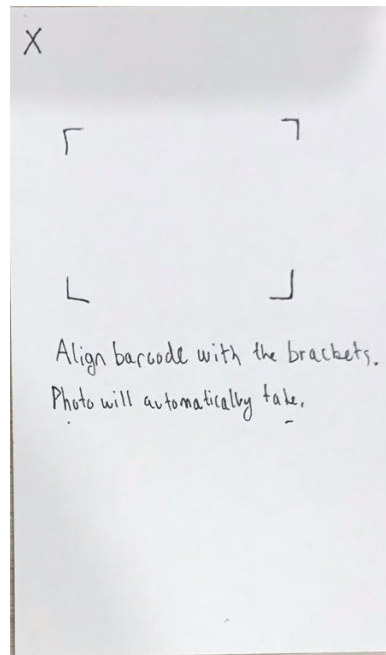 X
Align barcode with the brackets.
Photo will automatically take.